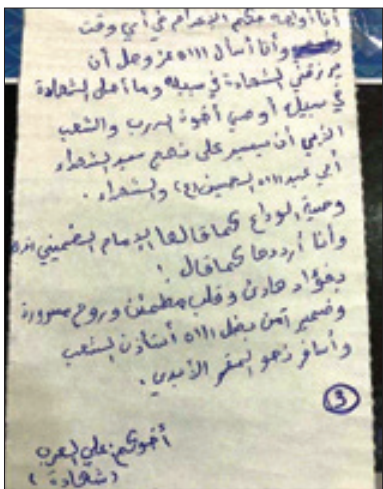 أنا أواجه حكم الإعدام في أي وقت
وأنا أسأل الله عز وجل أن
يرزقني الشهادة في سبيله وما أحلى الشهادة
في سبيله أوصي أخوة الدرب والشعب
الأبي أن يسير على نهج سيد الشهداء
أبي عبد الله الحسين (ع) والشهداء .
وصية الوداع كما قالها الإمام الخميني
وأنا أرددها كما قال :
بفؤاد هادئ وقلب مطمئن وروح مسرورة
وضمير آمن بفضل الله أستأذن الشعب
وأسافر نحو المقر الأبدي .
3
أخوكم : علي العرب
( شهادة )